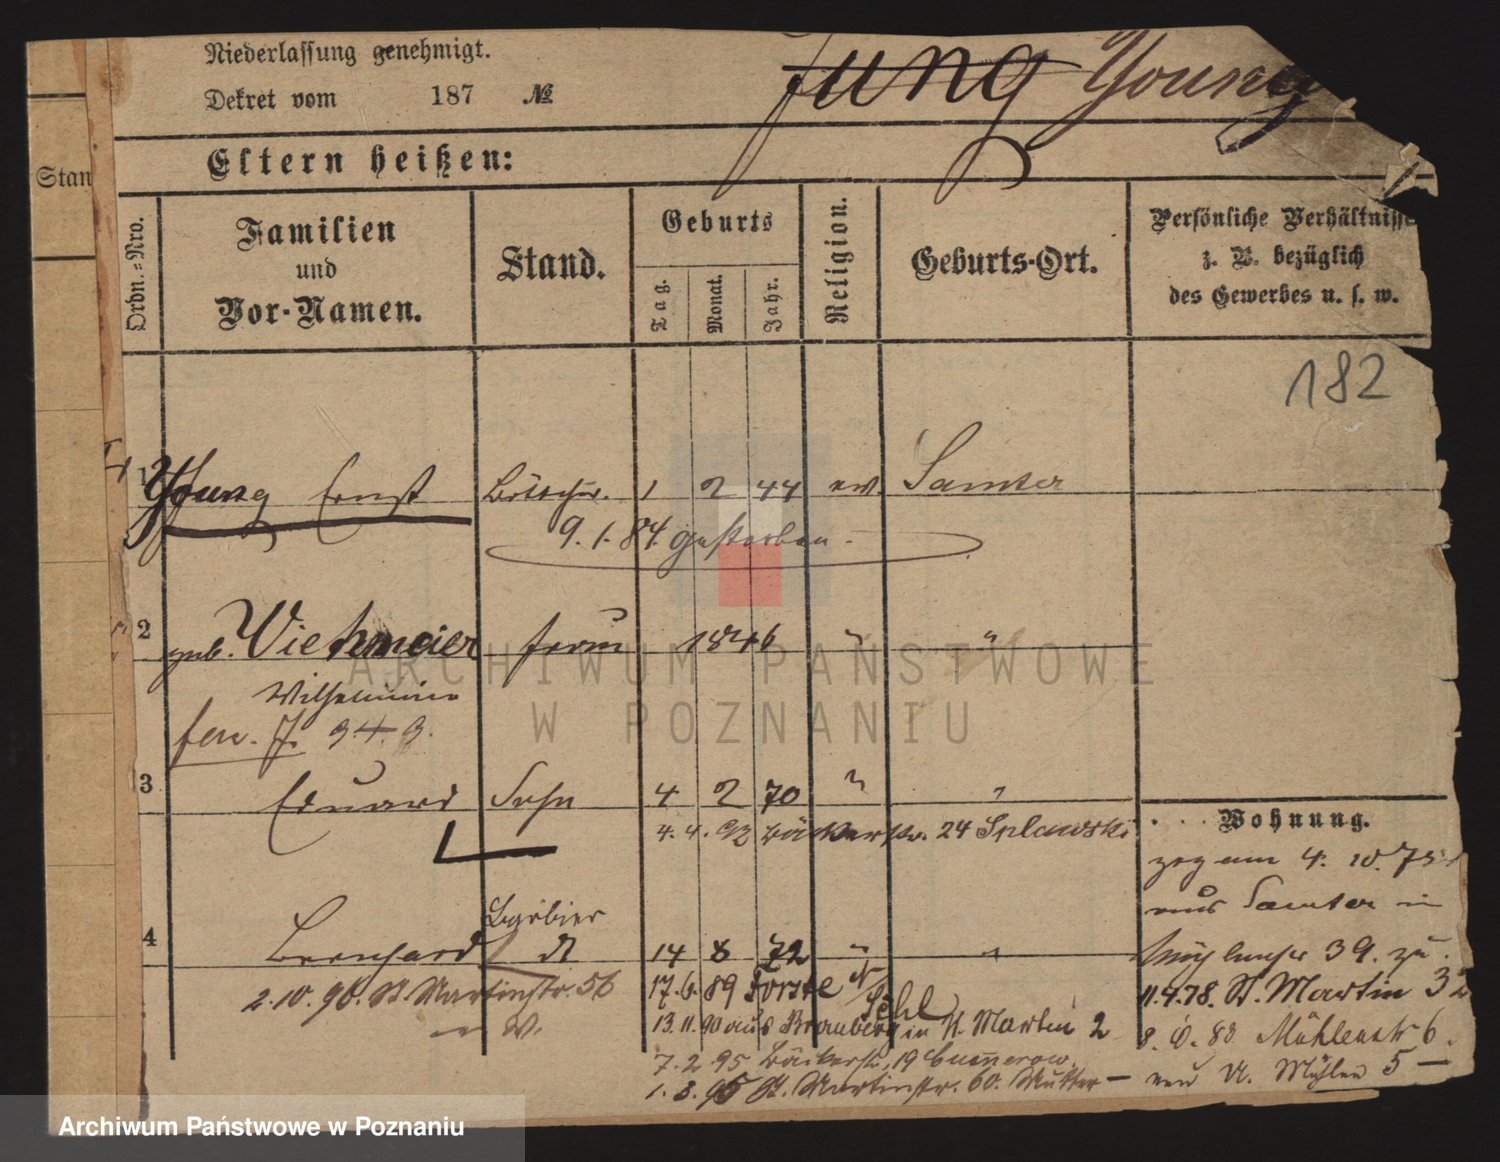 Niederlassung genehmigt.
Dekret vom 187 №
Jung Young
Eltern heißen:
Stan
Ordn.-Nro.
Familien
und
Vor-Namen.
Stand.
Geburts
Tag.
Monat.
Jahr.
Religion.
Geburts-Ort.
Persönliche Verhältnisse
z. B. bezüglich
des Gewerbes u. s. w.
182
1 Young Ernst Böttcher. 1 2 44 ev. Samter
9.1.84 gestorben.
2 geb. Viehmeier 1846 " "
Wilhelmine
3 Eduard Sohn 4 2 70 " "
4. 4. 92 Bäckerstr. 24 Splawski
Wohnung.
zog am 4. 10. 75
aus Samter in
39. zu.
11.4.78. St. Martin 32
8. 10. 80 Mühlenstr 6.
5
Barbier
4 Bernhard 14 8 72 " "
2.10.90. St. Martinstr. 56
17.6.89
13.11.90 aus in St. Martin 2
7. 2. 95 Bäckerstr. 19 Cummerow.
1. 3. 95 St. Martinstr. 60. Mutter
ARCHIWUM PAŃSTWOWE
W POZNANIU
Archiwum Państwowe w Poznaniu